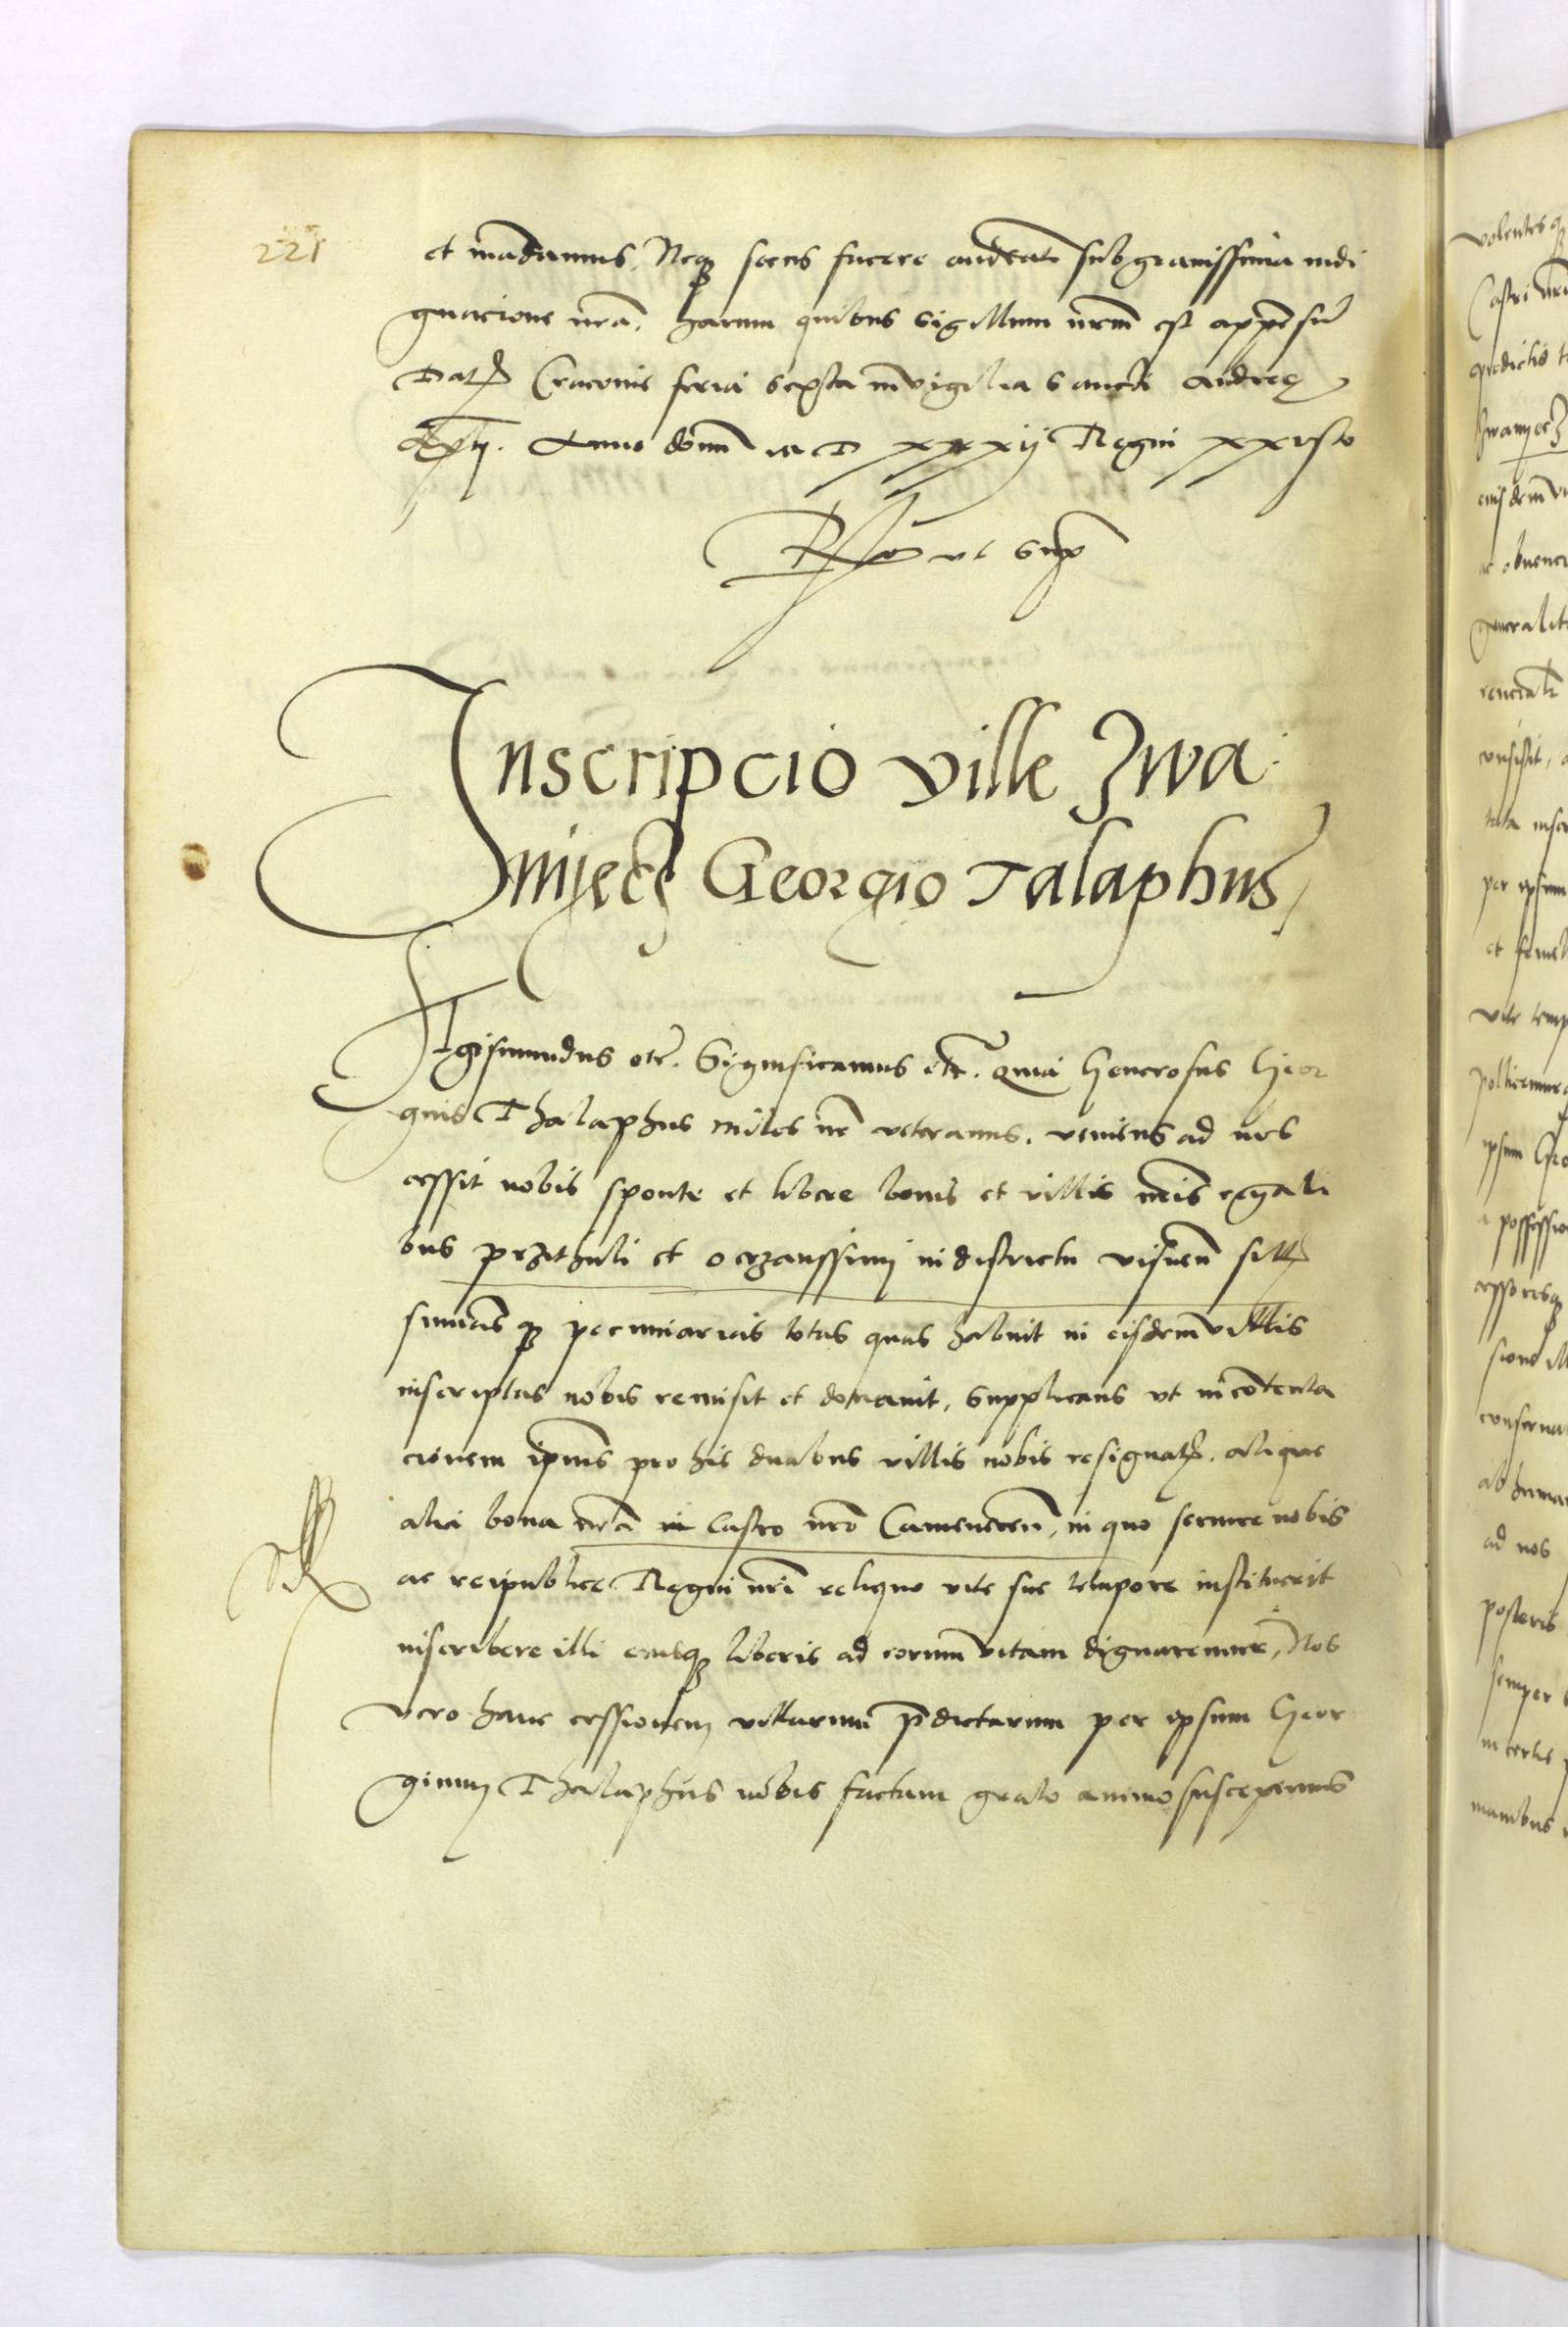 221
et mãdamus. Neqꝫ secus facere audeatis sub gravissima indi
gnacione nrã. harum quibus Sigillum nrm̃ est appẽsũ
Datꝫ Cracovie feria sexta in vigilia Sancti Andree
Apli. Anno domĩ M D xxxij Regni xxvito
Rlo ut sup̃
Inscripcio ville Zwa
nyecz Georgio Talaphus
Sigismundus etc̃. Significamus etc̃. Quia Generosus Geor
gius Thalaphus miles nr̃ veteranus. veniens ad nos
cessit nobis sponte et libere bonis et villis nr̃is regali
bus przithuli et oczaussimy in districtu visneñ sittꝫ
summas qꝫ pecuniarias totas quas habuit in eisdem villis
inscriptas nobis remisit et donavit, supplicans ut in cõtenta
cionem ipius pro his duabus villis nobis resignatꝫ. alique
alia bona nrã in Castro nrõ Cameneceñ, in quo servire nobis
ac reipublice Regni nrĩ reliquo vite sue tempore instituerit
inscribere illi eiusqꝫ liberis ad eorum vitam dignaremur, Nos
vero hanc cessionem villarum p̃dictarum per ipsum Geor
gium Thalaphus nobis factam grato animo suscepimus
volentes
Castri
predictis
Zwanyecz
eiusdem
ac obvenci
generalit
consistit,
per ipsum
et
vite temp
pollicemur
ipsum Geo
possessio
cessoresqꝫ
sione ill
conserva
ad nos
posteris
semper
in certis
manibus